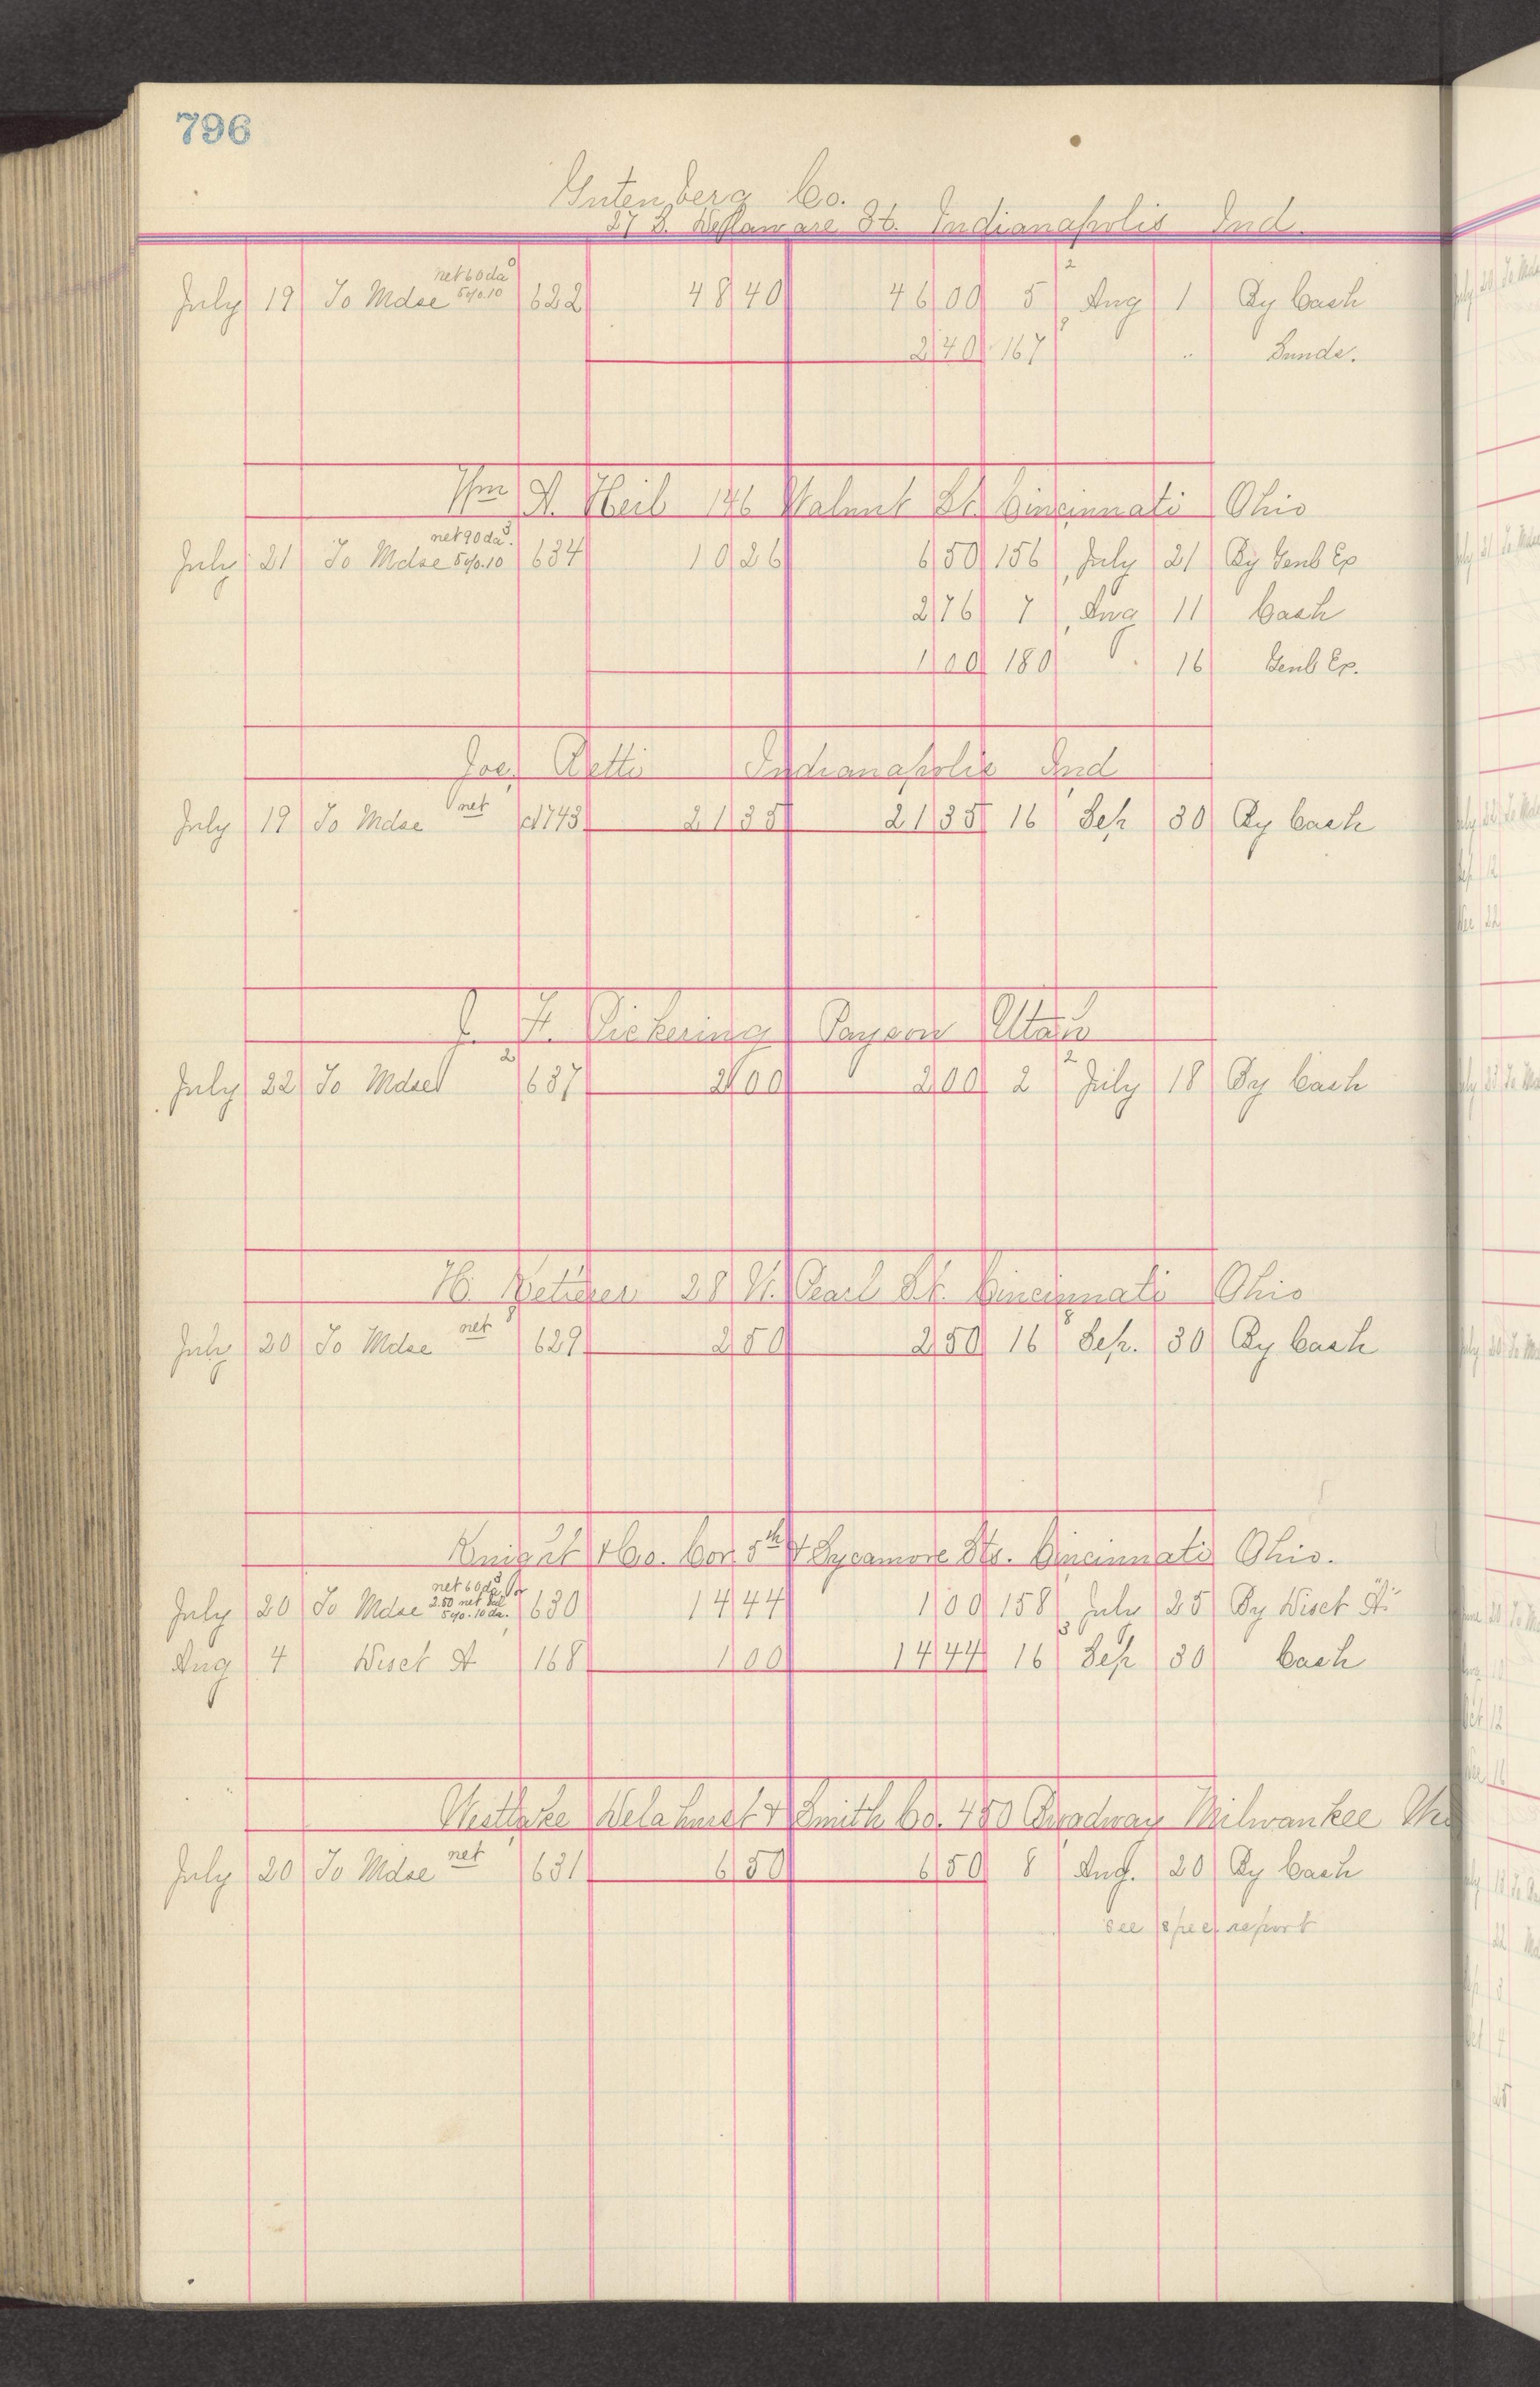 796
Gutenberg Co.
27 S. Delaware St. Indianapolis Ind.
net 60 da
July 19 To Mdse 5% 10 622 48 40 46 00 5 Aug 1 By Cash
2 40 167 " Sunds.
Wm A. Heil 146 Walnut St. Cincinnati Ohio
net 90 da.
July 21 To Mdse 5% 10 634 10 26 6 50 156 July 21 By Genl Ex
2 76 7 Aug 11 Cash
1 00 180 " 16 Genl Ex.
Joe Indianapolis Ind
July 19 To Mdse net 743 21 35 21 35 16 Sep 30 By Cash
J. F. Pickering Payson Utah
July 22 To Mdse 637 2 00 2 00 2 July 18 By Cash
H. 28 W. Pearl St. Cincinnati Ohio
July 20 To Mdse net 629 2 50 2 50 16 Sep. 30 By Cash
Knight & Co. Cor. 5th & Sycamore Sts. Cincinnati Ohio.
net 60 da or
2.50 net
July 20 To Mdse 5% 10 da. 630 14 44 1 00 158 July 25 By Disct
Aug 4 Disct 168 1 00 14 44 16 Sep 30 Cash
Smith Co. 430 Broadway Milwaukee
July 20 To Mdse net 631 6 50 6 50 8 Aug. 20 By Cash
see spec. report